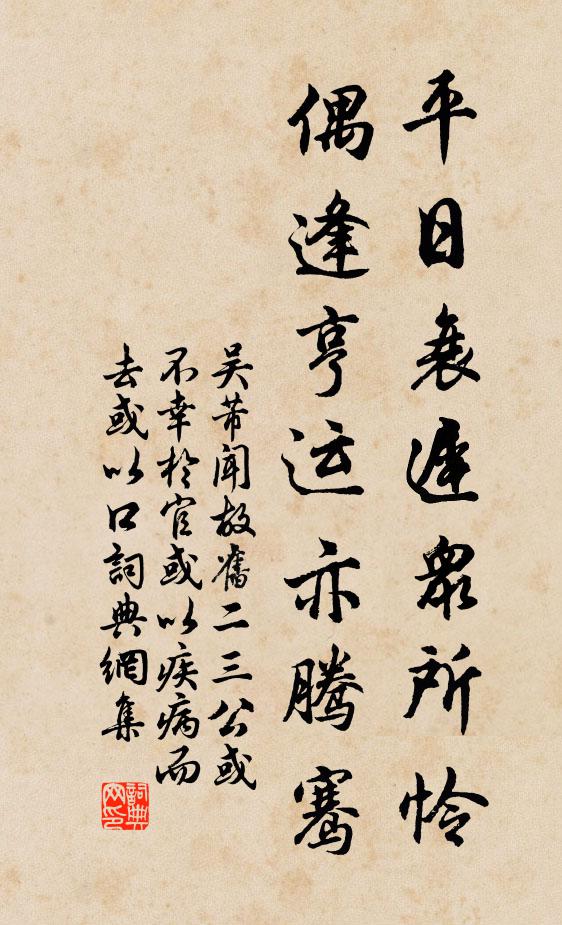 平日衰遲眾所怜
偶逢亨运亦騰騫
吴芾聞故舊二三公或
不幸於官或以疾病而
去或以口詞典網集
詞典网印